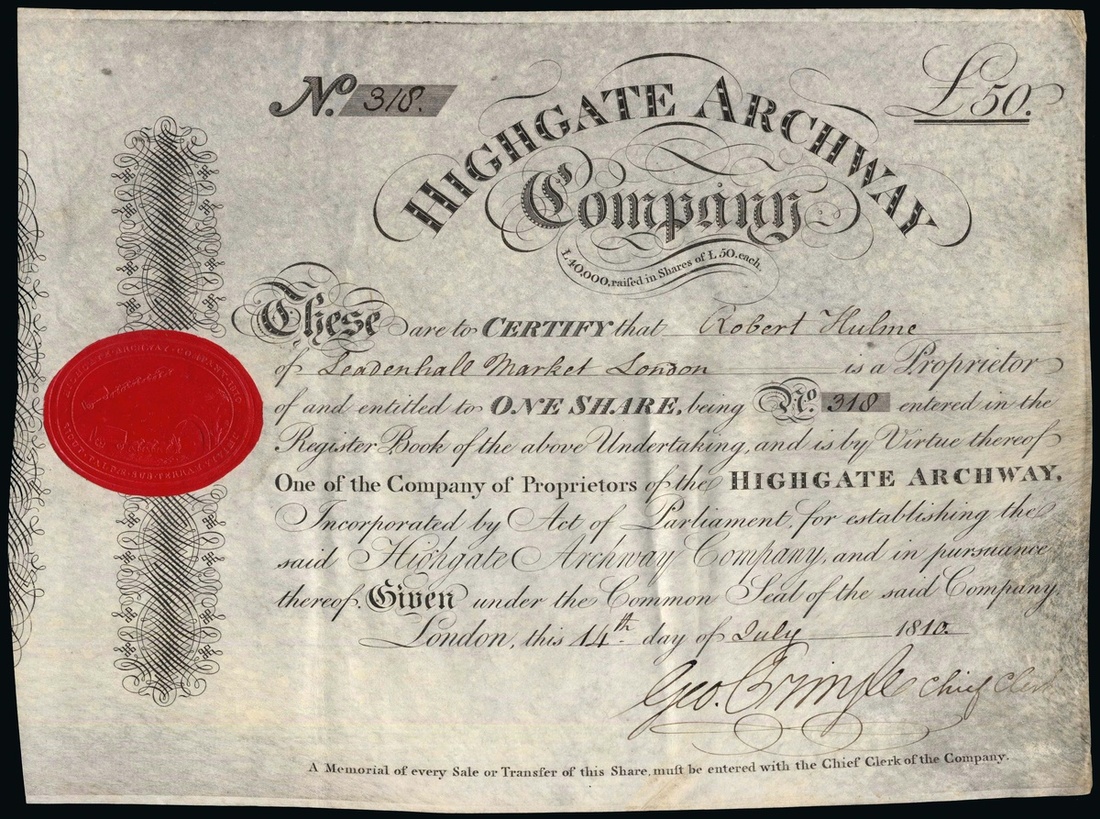 No. 318.
£50.
HIGHGATE ARCHWAY
Company
£40,000, raiſed in Shares of £50. each.
These are to CERTIFY that Robert Hulme
of Leadenhall Market London is a Proprietor
of and entitled to ONE SHARE, being No. 318 entered in the
Register Book of the above Undertaking, and is by Virtue thereof
One of the Company of Proprietors of the HIGHGATE ARCHWAY,
Incorporated by Act of Parliament, for establishing the
said Highgate Archway Company, and in pursuance
thereof. Given under the Common Seal of the said Company,
London, this 14th. day of July 1810.
Geo. Pringle Chief Clerk
A Memorial of every Sale or Transfer of this Share, muſt be entered with the Chief Clerk of the Company.